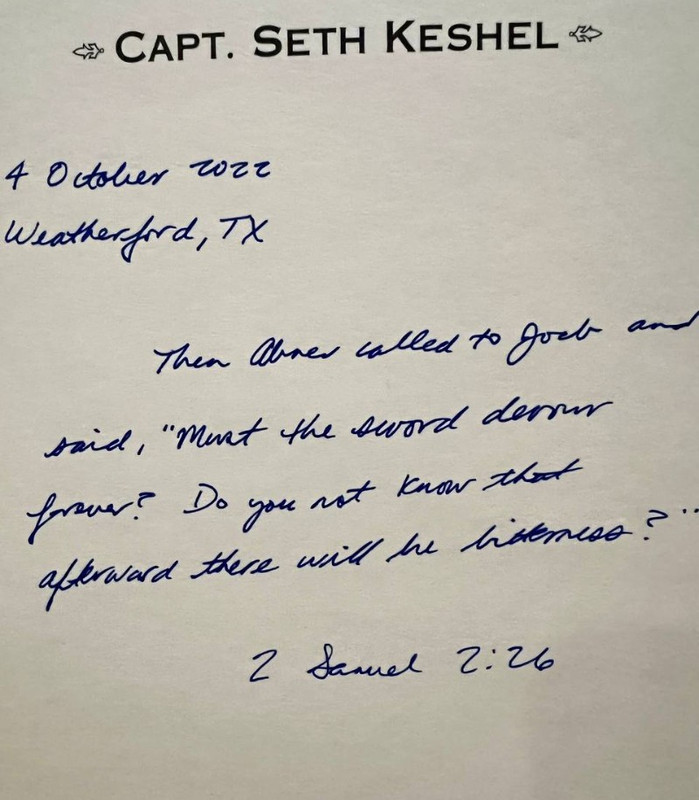 CAPT. SETH KESHEL
4 October 2022
Weatherford, TX
Then Abner called to Joab and
said, "Must the sword devour
forever? Do you not know that
afterward there will be bitterness?"
2 Samuel 2:26